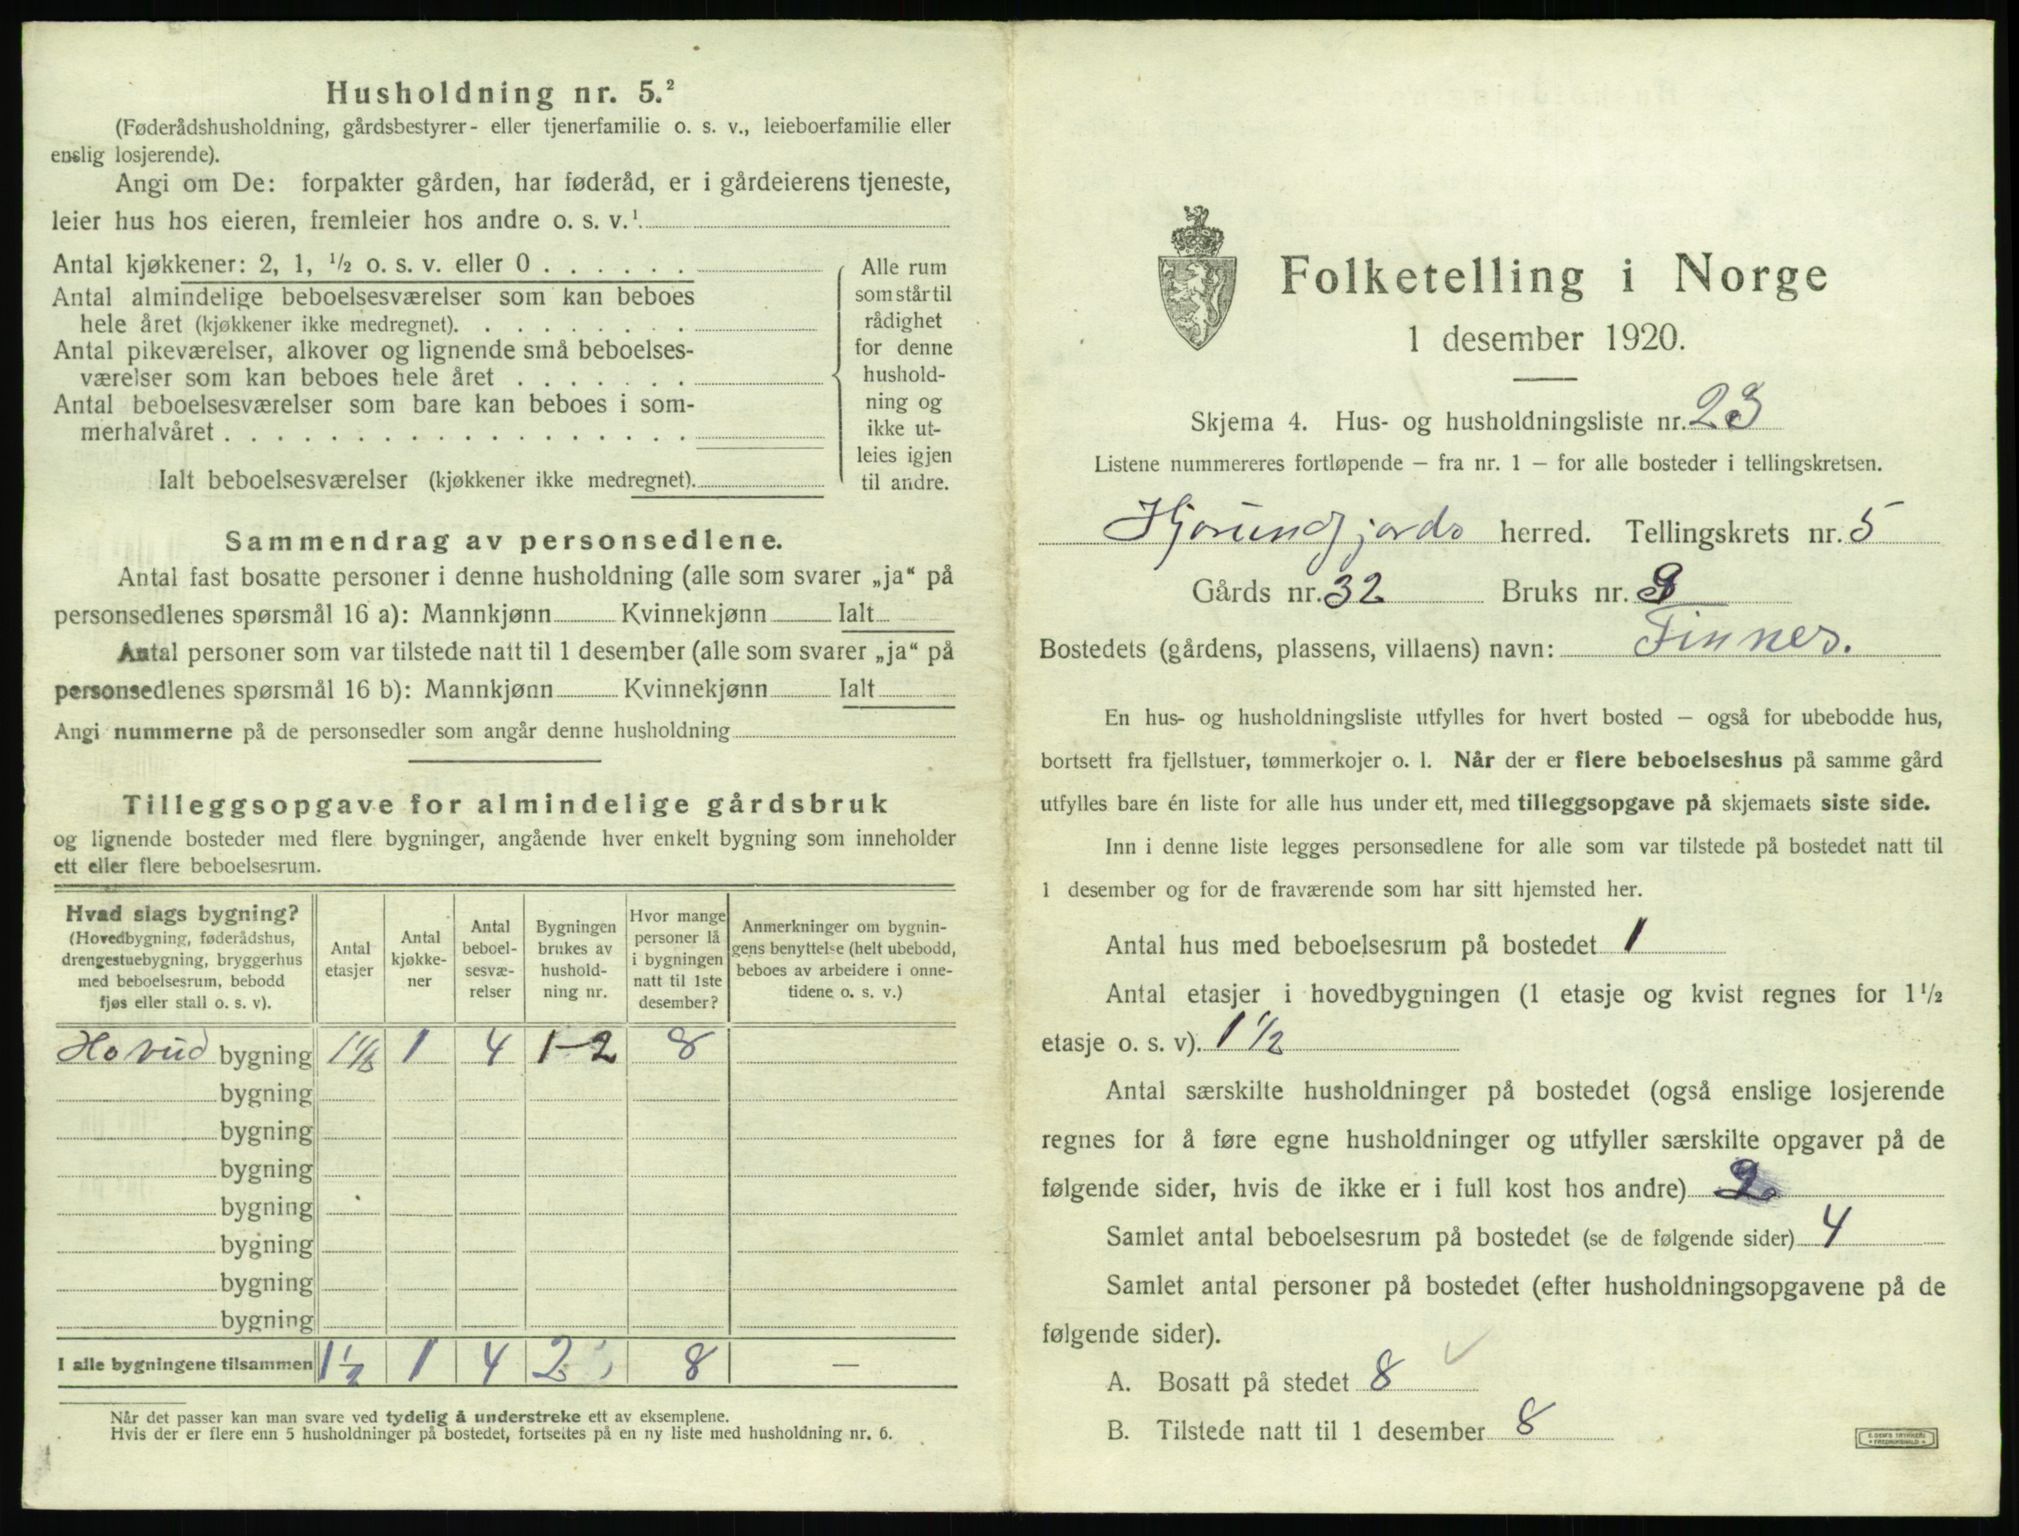 Husholdning nr. 5.²
(Føderådshusholdning, gårdsbestyrer- eller tjenerfamilie o. s. v., leieboerfamilie eller
enslig losjerende).
Angi om De: forpakter gården, har føderåd, er i gårdeierens tjeneste,
leier hus hos eieren, fremleier hos andre o. s. v.¹
Antal kjøkkener: 2, 1, ½ o. s. v. eller 0 . . . . . .
Antal almindelige beboelsesværelser som kan beboes
hele året (kjøkkener ikke medregnet). . . . . . . . .
Antal pikeværelser, alkover og lignende små beboelses-
værelser som kan beboes hele året . . . . . . .
Antal beboelsesværelser som bare kan beboes i som-
merhalvåret . . . . . . . . . . . . . . . . . .
Ialt beboelsesværelser (kjøkkener ikke medregnet).
Alle rum
som står til
rådighet
for denne
hushold-
ning og
ikke ut-
leies igjen
til andre.
Sammendrag av personsedlene.
Antal fast bosatte personer i denne husholdning (alle som svarer „ja“ på
personsedlenes spørsmål 16 a): Mannkjønn Kvinnekjønn Ialt
Antal personer som var tilstede natt til 1 desember (alle som svarer „ja“ på
personsedlenes spørsmål 16 b): Mannkjønn Kvinnekjønn Ialt
Angi nummerne på de personsedler som angår denne husholdning
Tilleggsopgave for almindelige gårdsbruk
og lignende bosteder med flere bygninger, angående hver enkelt bygning som inneholder
ett eller flere beboelsesrum.
Hvad slags bygning?
(Hovedbygning, føderådshus,
drengestuebygning, bryggerhus
med beboelsesrum, bebodd
fjøs eller stall o. s. v).
Antal
etasjer
Antal
kjøkke-
ner
Antal
beboel-
sesvæ-
relser
Bygningen
brukes av
hushold-
ning nr.
Hvor mange
personer lå
i bygningen
natt til 1ste
desember?
Anmerkninger om bygnin-
gens benyttelse (helt ubebodd,
beboes av arbeidere i onne-
tidene o. s. v.)
Hovud bygning 1½ 1 4 1-2 8
bygning
bygning
bygning
bygning
bygning
bygning
bygning
I alle bygningene tilsammen 1½ 1 4 2 8 —
Når det passer kan man svare ved tydelig å understreke ett av eksemplene.
Hvis der er flere enn 5 husholdninger på bostedet, fortsettes på en ny liste med husholdning nr. 6.
Folketelling i Norge
1 desember 1920.
Skjema 4. Hus- og husholdningsliste nr. 23
Listene nummereres fortløpende — fra nr. 1 — for alle bosteder i tellingskretsen.
Hjørundfjords herred. Tellingskrets nr. 5
Gårds nr. 32 Bruks nr.
Bostedets (gårdens, plassens, villaens) navn: Finnes.
En hus- og husholdningsliste utfylles for hvert bosted — også for ubebodde hus,
bortsett fra fjellstuer, tømmerkojer o. l. Når der er flere beboelseshus på samme gård
utfylles bare én liste for alle hus under ett, med tilleggsopgave på skjemaets siste side.
Inn i denne liste legges personsedlene for alle som var tilstede på bostedet natt til
1 desember og for de fraværende som har sitt hjemsted her.
Antal hus med beboelsesrum på bostedet 1
Antal etasjer i hovedbygningen (1 etasje og kvist regnes for 1½
etasje o. s. v). 1½
Antal særskilte husholdninger på bostedet (også enslige losjerende
regnes for å føre egne husholdninger og utfyller særskilte opgaver på de
følgende sider, hvis de ikke er i full kost hos andre) 2
Samlet antal beboelsesrum på bostedet (se de følgende sider) 4
Samlet antal personer på bostedet (efter husholdningsopgavene på de
følgende sider).
A. Bosatt på stedet 8 ✓
B. Tilstede natt til 1 desember 8